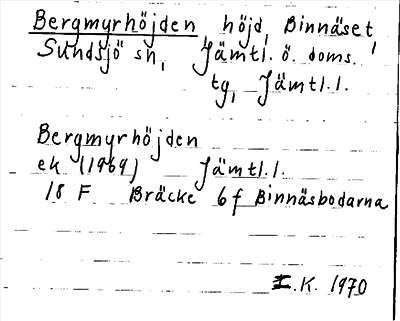 Bergmyrhöjden, höjd, Binnäset,
Sundsjö sn, Jämtl. ö. doms.
tg, Jämtl. l.
Bergmyrhöjden
ek (1969) Jämtl. l.
18 F Bräcke 6 f Binnäsbodarna
I.K. 1970